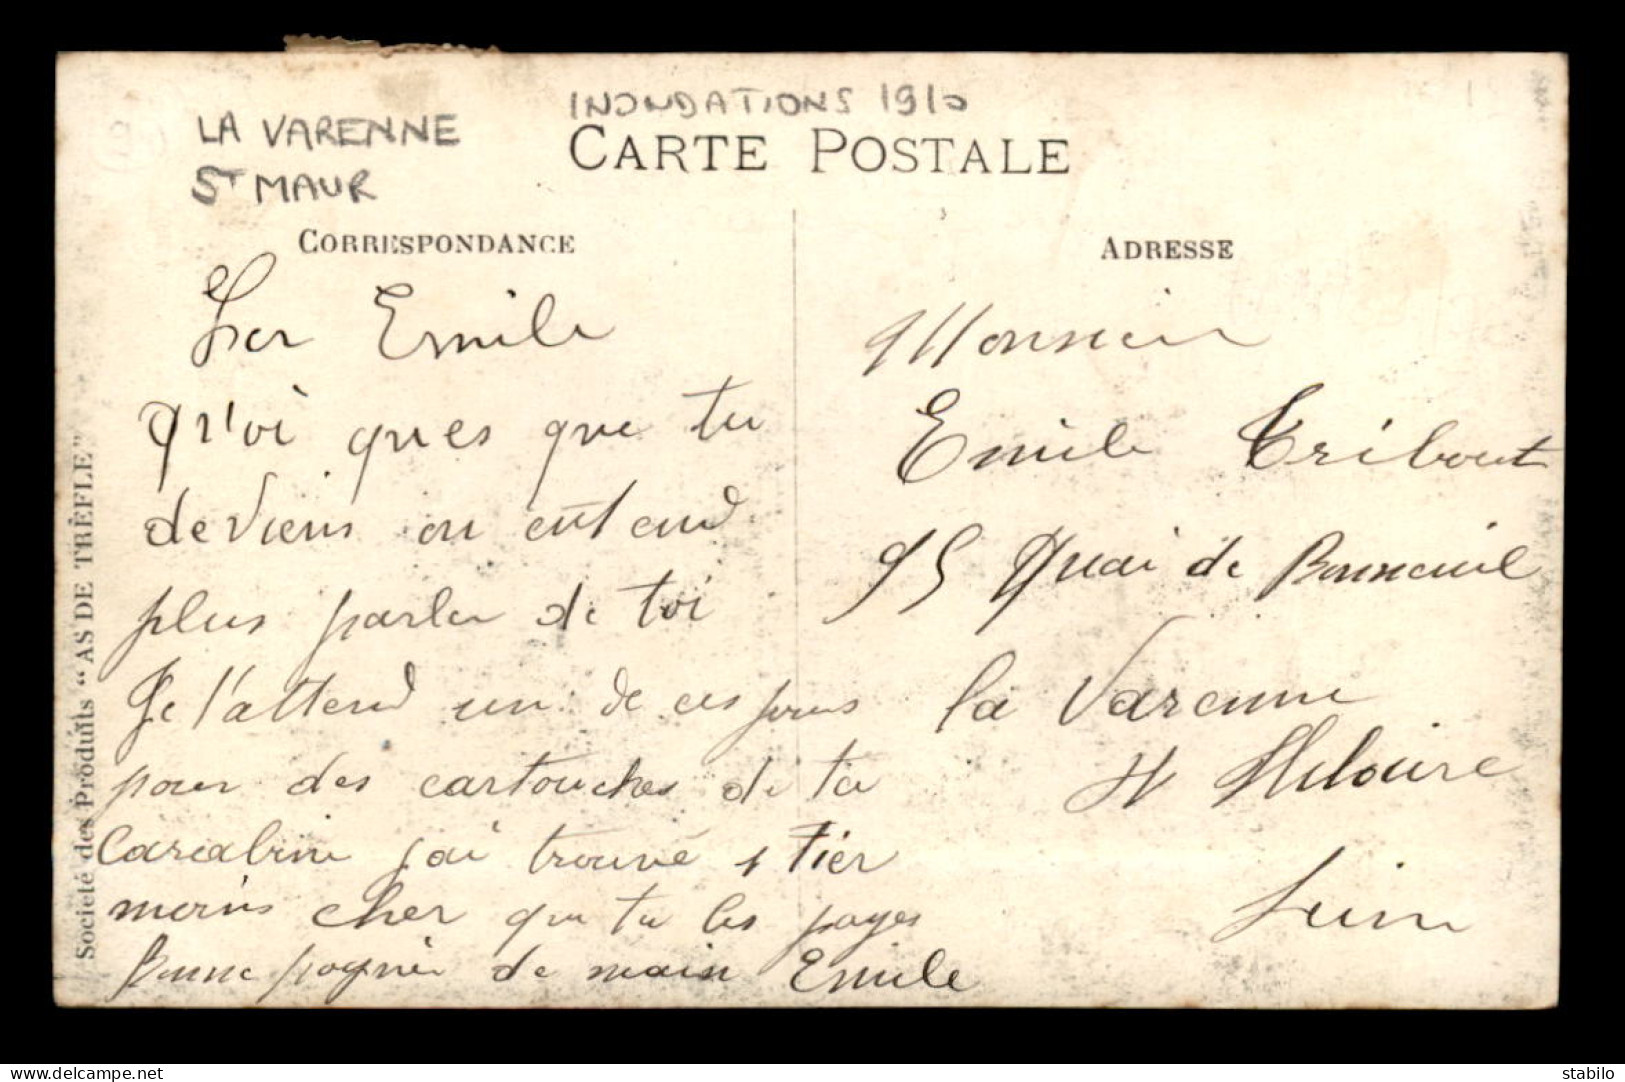 INONDATIONS 1910
LA VARENNE
ST MAUR
CARTE POSTALE
CORRESPONDANCE
Emile
qu'oi ques que tu
deviens on entend
plus parler de toi
Je t'attend un de ces jours
pour des cartouches de ta
Carabine j'ai trouvé 1 tier
moins cher que tu les payes
Bonne pognié de main Emile
ADRESSE
Monsieur
Emile Tribout
95 Quai de Bonneuil
la Varenne
St Hilaire
Seine
Société des Produits "AS DE TRÈFLE"
delcampe.net
stabilo